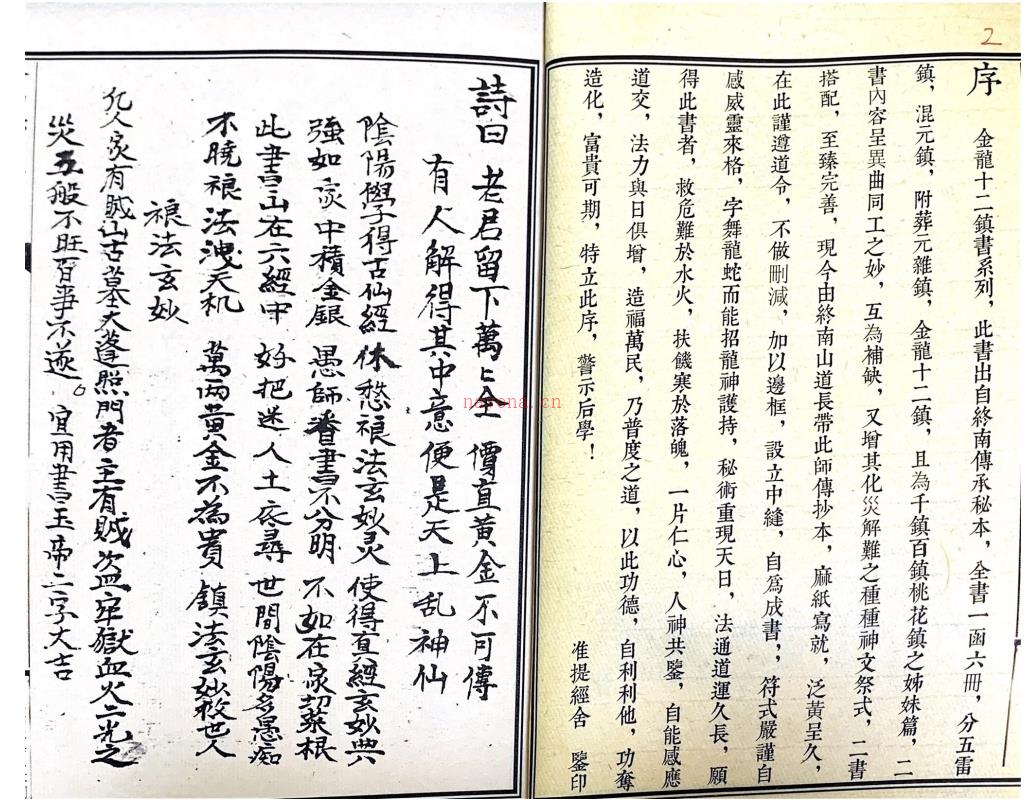 2
序
金龍十二鎮書系列，此書出自終南傳承秘本，全書一函六冊，分五雷
鎮，混元鎮，附葬元雜鎮，金龍十二鎮，且為千鎮百鎮桃花鎮之姊妹篇，二
書內容呈異曲同工之妙，互為補缺，又增其化災解難之種種神文祭式，二書
搭配，至臻完善，現今由終南山道長帶此師傳抄本，麻紙寫就，泛黃呈久，
在此謹遵道令，不做刪減，加以邊框，設立中縫，自為成書，，符式嚴謹自
感威靈來格，字舞龍蛇而能招龍神護持，秘術重現天日，法通道運久長，願
得此書者，救危難於水火，扶饑寒於落魄，一片仁心，人神共鑒，自能感應
道交，法力與日俱增，造福萬民，乃普度之道，以此功德，自利利他，功奪
造化，富貴可期，特立此序，警示后學！
准提經舍 鑒印
詩曰 老君留下萬上金 價直黃金不可傳
有人解得其中意便是天上乱神仙
陰陽學子得古仙經 休愁禳法玄妙灵 使得直經玄妙典
强如家中積金銀 愚師看書不分明 不如在家契菜根
此書出在六經中 好把迷人土底尋 世間陰陽多愚痴
不曉禳法洩天机 萬两黃金不為貴 鎮法玄妙救世人
禳法玄妙
凢人家有賊山古墓天逢照門者主有賊盗牢獄血火之光之
災五般不旺百事不遂。宜用書玉帝二字大吉
nayona.cn